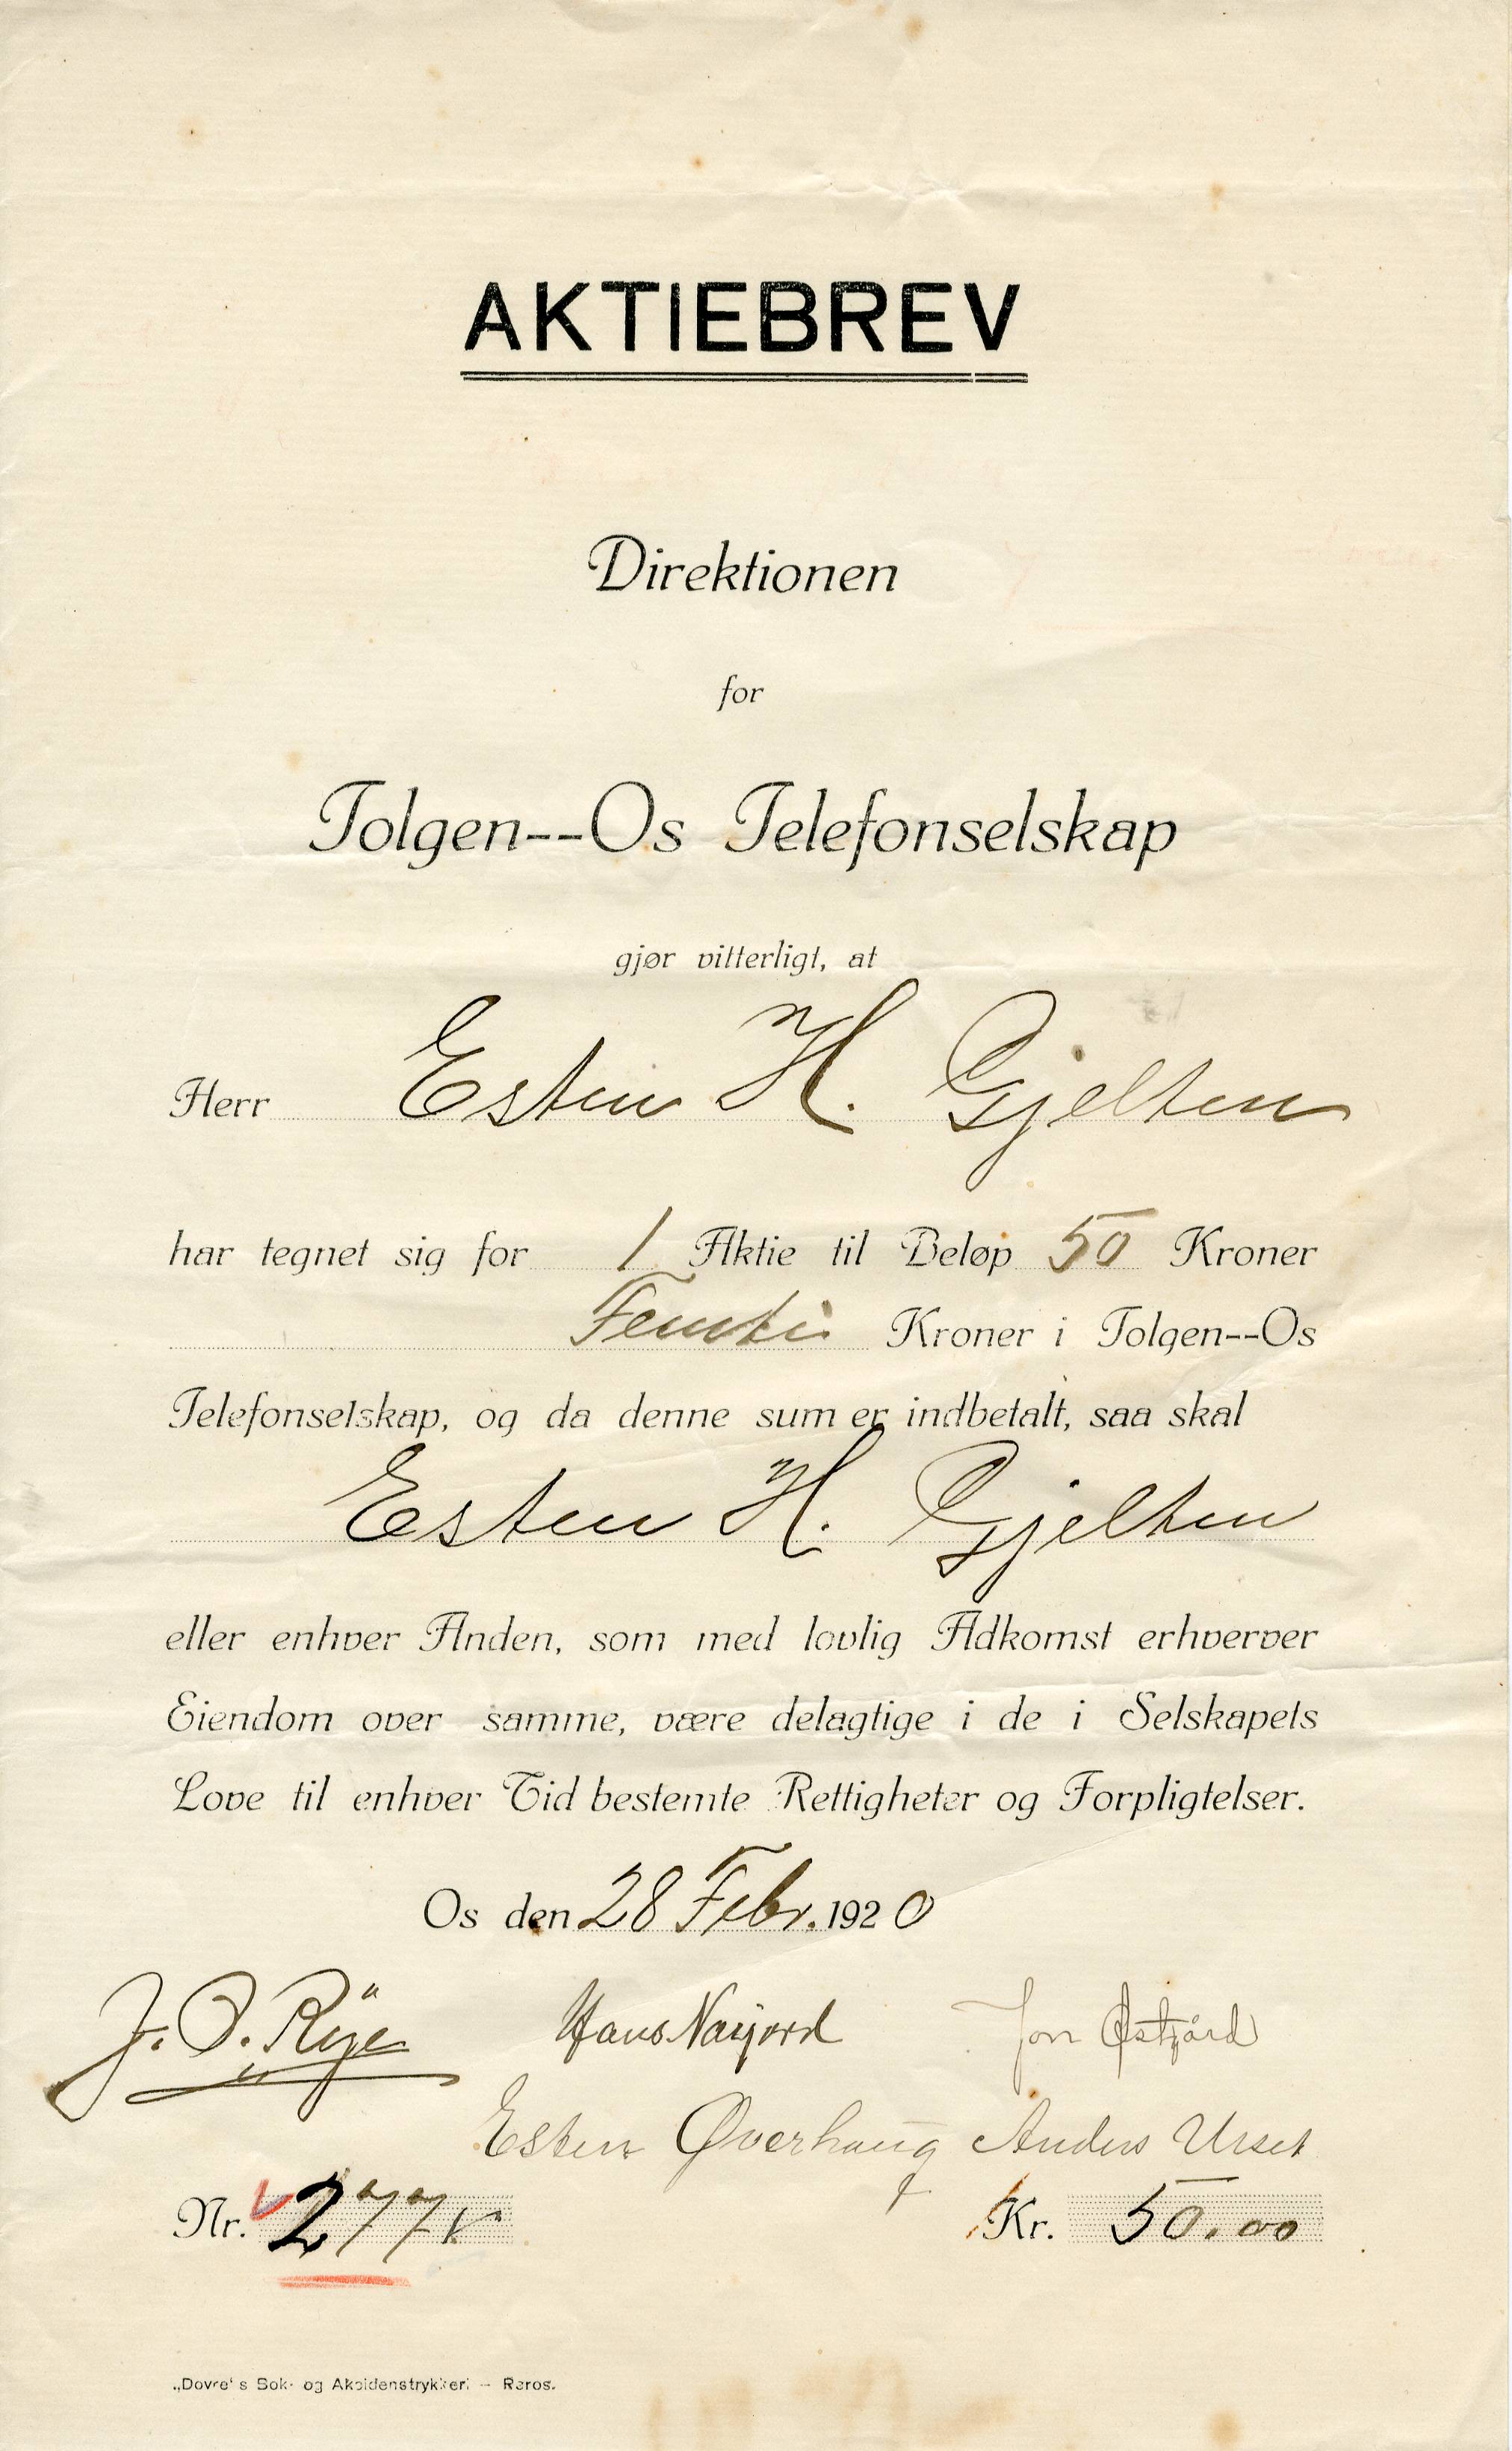 AKTIEBREV
Direktionen
for
Tolgen--Os Telefonselskap
gjør vitterligt, at
Herr Esten H. Gjelten
har tegnet sig for 1 Aktie til Beløp 50 Kroner
Femti Kroner i Tolgen--Os
Telefonselskap, og da denne sum er indbetalt, saa skal
Esten H. Gjelten
eller enhver Anden, som med lovlig Adkomst erhverver
Eiendom over samme, være delagtige i de i Selskapets
Love til enhver Tid bestemte Rettigheter og Forpligtelser.
Os den 28 Febr. 1920
J. O. Røe Hans Narjord Jon Østgård
Esten Øverhaug Anders Urset
Nr. 277 Kr. 50.00
„Dovre's Bok- og Aksidenstrykkeri – Røros.